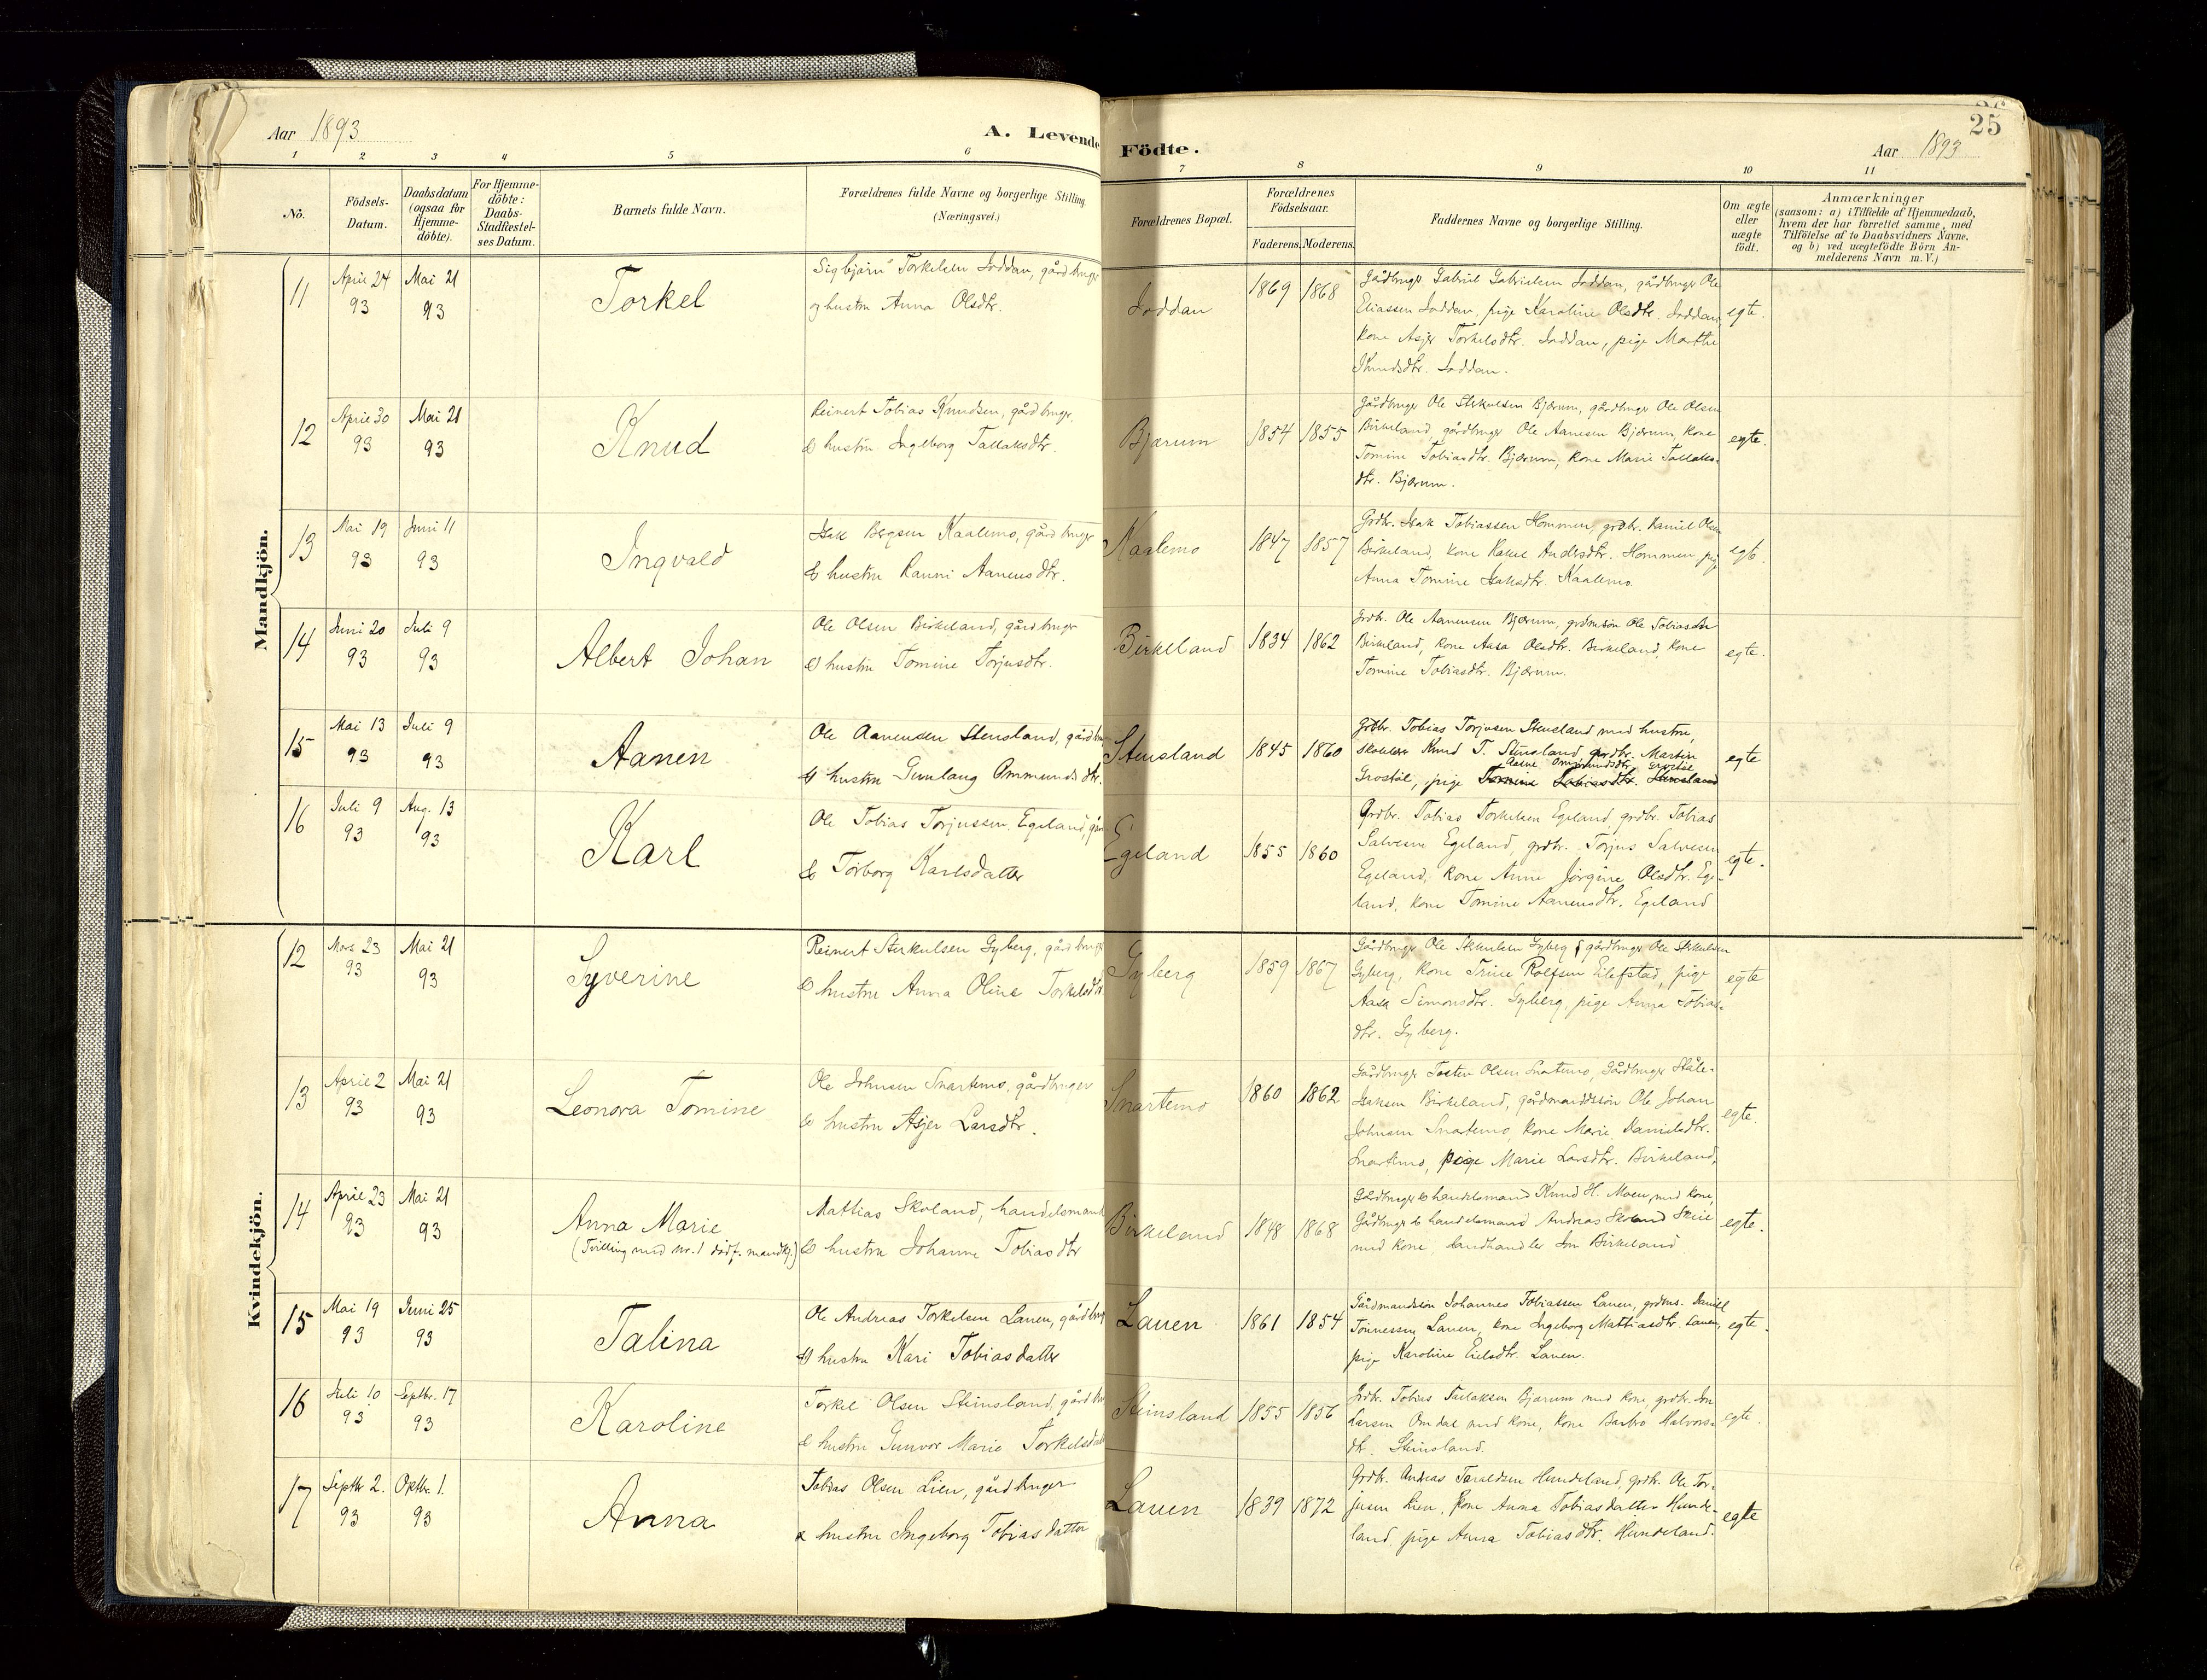 Aar 1893
A. Levende Födte.
Aar 1893
25
1 2 3 4 5 6 7 8 9 10 11
No.
Födsels-Datum.
Daabsdatum (ogsaa for Hjemme-döbte).
For Hjemme-döbte: Daabs-Stadfæstel-ses Datum.
Barnets fulde Navn.
Forældrenes fulde Navne og borgerlige Stilling (Næringsvei.)
Forældrenes Bopæl.
Forældrenes Födselsaar.
Faderens. Moderens.
Faddernes Navne og borgerlige Stilling.
Om ægte eller uægte födt.
Anmærkninger
(saasom: a) i Tilfælde af Hjemmedaab,
hvem der har forrettet samme, med
Tilföielse af to Daabsvidners Navne,
og b) ved uægtefödte Börn An-
melderens Navn m.V.)
Mandkjön.
11 April 24 93 Mai 21 93 Torkel
Sigbjørn Torkelsen Joddan, gårdbruger
og hustru Anna Olsdtr.
Joddan 1869 1868
Gårdbruger Gabriel Gabrielsen Joddan, gårdbruger Ole
Eliassen Joddan, pige Karoline Olsdtr. Joddan,
kone Asjer Torkelsdtr. Joddan, pige Marthe
Knudsdtr. Joddan.
egte.
12 April 30 93 Mai 21 93 Knud
Reinert Tobias Knudsen, gårdbruger,
& hustru Ingeborg Tallaksdtr.
Bjærum 1854 1855
Gårdbruger Ole Sterkulsen Bjærum, gårdbruger Ole Olsen
Birkeland, gårdbruger Ole Aanensen Bjærum, kone
Tomine Tobiasdtr. Bjærum, kone Marie Tallaks-
dtr. Bjærum.
egte.
13 Mai 19 93 Juni 11 93 Ingvald
Isak Bergsen Kaalemo, gårdbruger
& hustru Ranni Aanensdtr.
Kaalemo 1847 1857
Grdbr. Isak Tobiassen Hommen, grdbr. Daniel Olsen
Birkeland, kone Rakel Andersdtr. Hommen, pige
Anna Tomine Isaksdtr. Kaalemo.
egte.
14 Juni 20 93 Juli 9 93 Albert Johan
Ole Olsen Birkeland, gårdbruger
& hustru Tomine Torjusdtr.
Birkeland 1834 1862
Grdbr. Ole Aanensen Bjærum, grdmsøn Ole Tobiassen
Birkeland, kone Aasa Olsdtr. Birkeland, kone
Tomine Tobiasdtr. Bjærum.
egte.
15 Mai 13 93 Juli 9 93 Aanen
Ole Aanensen Stensland, gårdbru
& hustru Gunlaug Ommundsdtr.
Stensland 1845 1860
Grdbr. Tobias Torjusen Stensland med hustru,
skolelærer Knud T. Stensland, grdbr. Martin
Aasne Ommundsdtr. Grostøl
Grostøl, pige Tomine Tobiasdtr. Stensland
egte
16 Juli 9 93 Aug. 13 93 Karl
Ole Tobias Torjussen Egeland, går
& Torborg Karlsdatter
Egeland 1855 1860
Grdbr. Tobias Torkelsen Egeland, grdbr. Tobias
Salvesen Egeland, grdbr. Torjus Salvesen
Egeland, kone Anne Jørgine Olsdtr. Ege-
land, kone Tomine Aanensdtr. Egeland
egte.
Kvindekjön.
12 Mars 23 93 Mai 21 93 Syverine
Reinert Sterkulsen Gyberg, gårdbruger
& hustru Anna Oline Torkelsdtr.
Gyberg 1859 1867
Gårdbruger Ole Sterkulsen Gyberg, gårdbruger Ole Sterkulsen
Gyberg, kone Trine Rolfsen Eilefstad, pige
Aasa Simonsdtr. Gyberg, pige Anna Tobias-
dtr. Gyberg.
egte
13 April 2 93 Mai 21 93 Leonora Tomine
Ole Johnsen Snartemo, gårdbruger
& hustru Asjer Larsdtr.
Snartemo 1860 1862
Gårdbruger Tosten Olsen Snartemo, Gårdbruger Ståle
Isaksen Birkeland, gårdmandssøn Ole Johan
Johnsen Snartemo, kone Marie Danielsdtr.
Snartemo, pige Marie Larsdtr. Birkeland,
egte.
14 April 23 93 Mai 21 93 Anna Marie
(Tvilling med nr. 1 dødf. mandkj.)
Mattias Skoland, handelsmand
& hustru Johanne Tobiasdtr
Birkeland 1848 1868
Gårdbruger & handelsmand Knud H. Moen, med kone,
Gårdbruger & handelsmand Andreas Skoland Skeie
med kone, landhandler Jon Birkeland
egte.
15 Mai 19 93 Juni 25 93 Talina
Ole Andreas Torkelsen Lauen, gårdbrug
& hustru Kari Tobiasdatter
Lauen 1861 1854
Gårdmandssøn Johannes Tobiassen Lauen, grdms. Daniel
Tønnessen Lauen, kone Ingeborg Mattiasdtr. Lauen,
pige Karoline Eielsdtr. Lauen.
egte.
16 Juli 10 93 Septbr. 17 93 Karoline
Torkel Olsen Steinsland, gårdbru
& hustru Gunvor Marie Torkelsdatt
Steinsland 1855 1856
Grdbr. Tobias Tallaksen Bjærum med kone, grdbr. Jon
Larsen Omdal med kone, kone Barbro Halvors-
dtr. Steinsland.
egte.
17 Septbr 2. 93 Oktbr. 1. 93 Anna
Tobias Olsen Lien, gårdbruger
& hustru Ingeborg Tobiasdatter
Lauen 1839 1872
Grdbr. Andreas Taraldsen Hundeland, grdbr. Ole Tor-
jusen Lien, kone Anna Tobiasdatter Hunde-
land, pige Anna Tobiasdtr. Hundeland.
egte